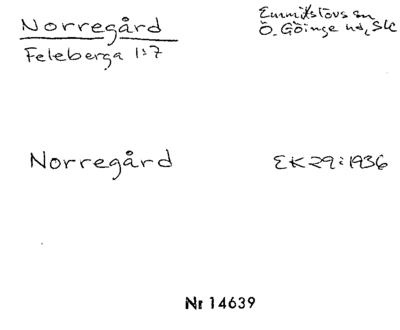 Norregård
Feleberga 1:7
Emmitslövs sn
Ö. Göinge hd, Skc
Norregård
EK 29: 1936
Nr 14639